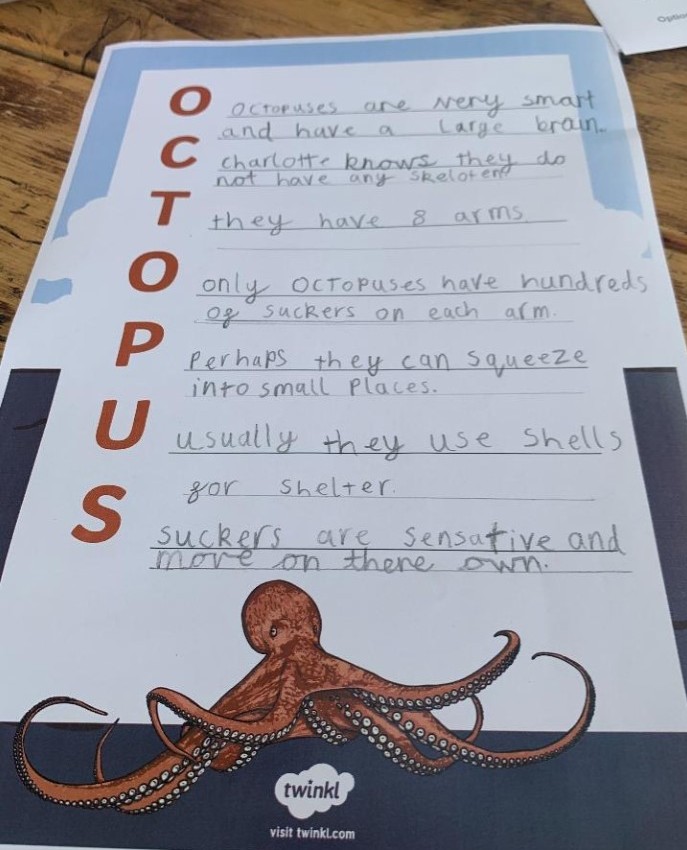 O octopuses are very smart
and have a large brain.
C charlotte knows they do
not have any skeloten
T they have 8 arms
O only octopuses have hundreds
of suckers on each arm.
P Perhaps they can squeeze
into small places.
U usually they use shells
for shelter.
S suckers are sensative and
move on there own.
twinkl
visit twinkl.com